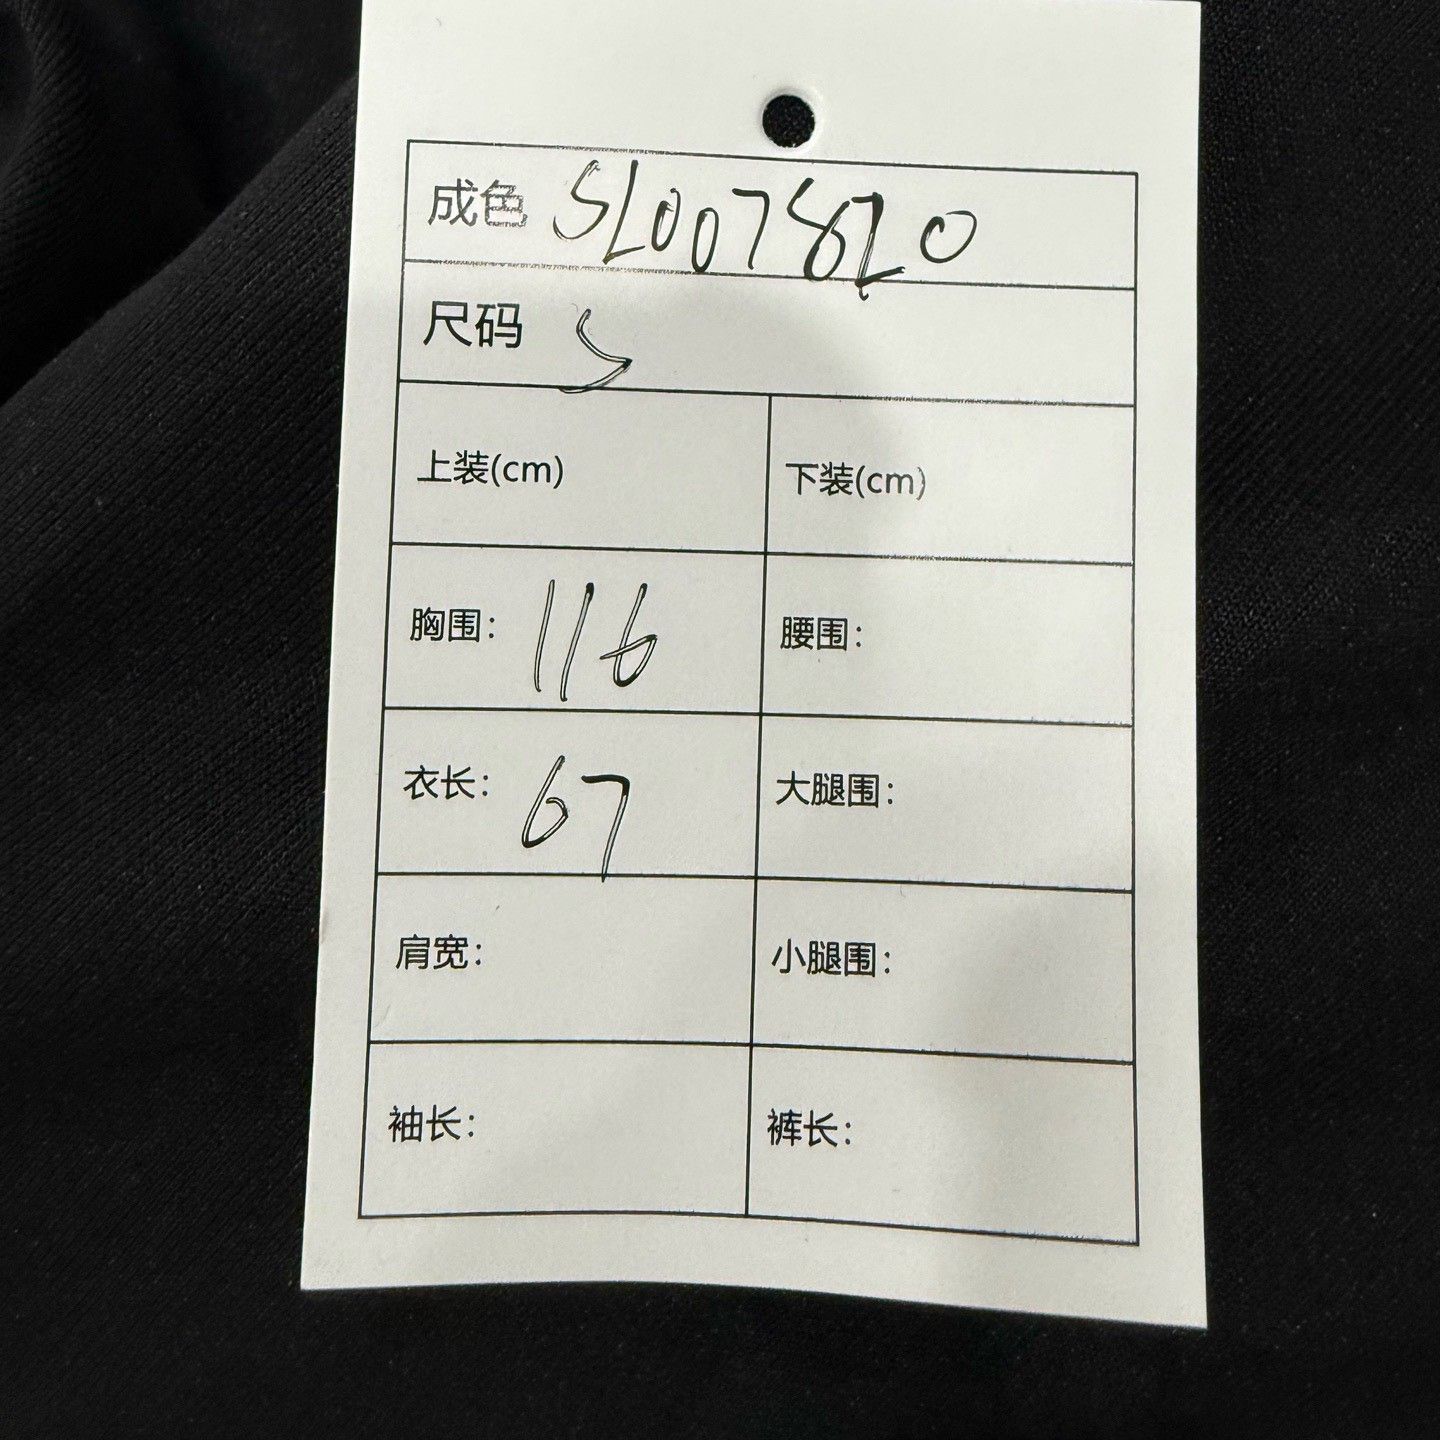 成色 SL007820
尺码 S
上装(cm) 下装(cm)
胸围： 116 腰围：
衣长： 67 大腿围：
肩宽： 小腿围：
袖长： 裤长：